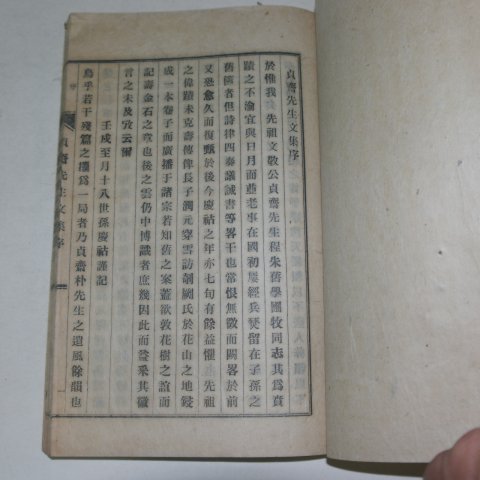 貞齋先生文集序
於惟我 先祖文敬公貞齋先生程朱舊學圃牧同志其爲賁
蹟之不渝宜與日月而並老事在國初屢經兵燹留在子孫之
舊篋者但詩律四奏議誡書等畧干也當恨無徵而闕畧於前
又恐愈久而復甄於後今慶祜之年亦七旬有餘益懼 先祖
之偉蹟未克壽傳俾長子潤元穿雲訪剞劂氏於花山之地鋟
成一本卷子而廣播于諸宗若知舊之案蓋欲敦花樹之誼而
記壽金石之章也後之雲仍中博識者庶幾因此而發采其微
言之未及攷云爾
壬戌至月十八世孫慶祜謹記
烏乎若干殘篇之摟爲一局者乃貞齋朴先生之遺風餘韻也
貞齋先生文集序